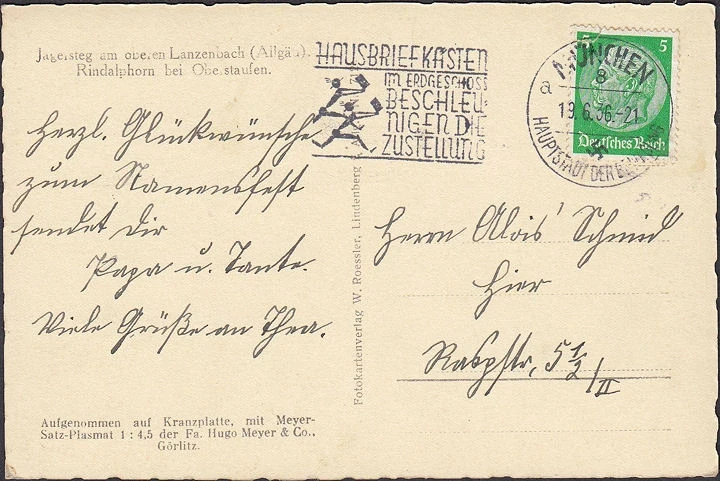 Jägersteg am oberen Lanzenbach (Allgäu).
Rindalphorn bei Oberstaufen.
Herzl. Glückwünsche
zum Namensfest
sendet Dir
Papa u. Tante.
Viele Grüße an Thea.
Aufgenommen auf Kranzplatte, mit Meyer-
Satz-Plasmat 1 : 4,5 der Fa. Hugo Meyer & Co.,
Görlitz.
Fotokartenverlag W. Roessler, Lindenberg
HAUSBRIEFKÄSTEN
IM ERDGESCHOSS
BESCHLEU-
NIGEN DIE
ZUSTELLUNG
MÜNCHEN
8
a
19.6.36.-21
HAUPTSTADT DER
5 5
Deutsches Reich
Herrn Alois Schmid
Hier
Raspstr. 5 1/2 / II